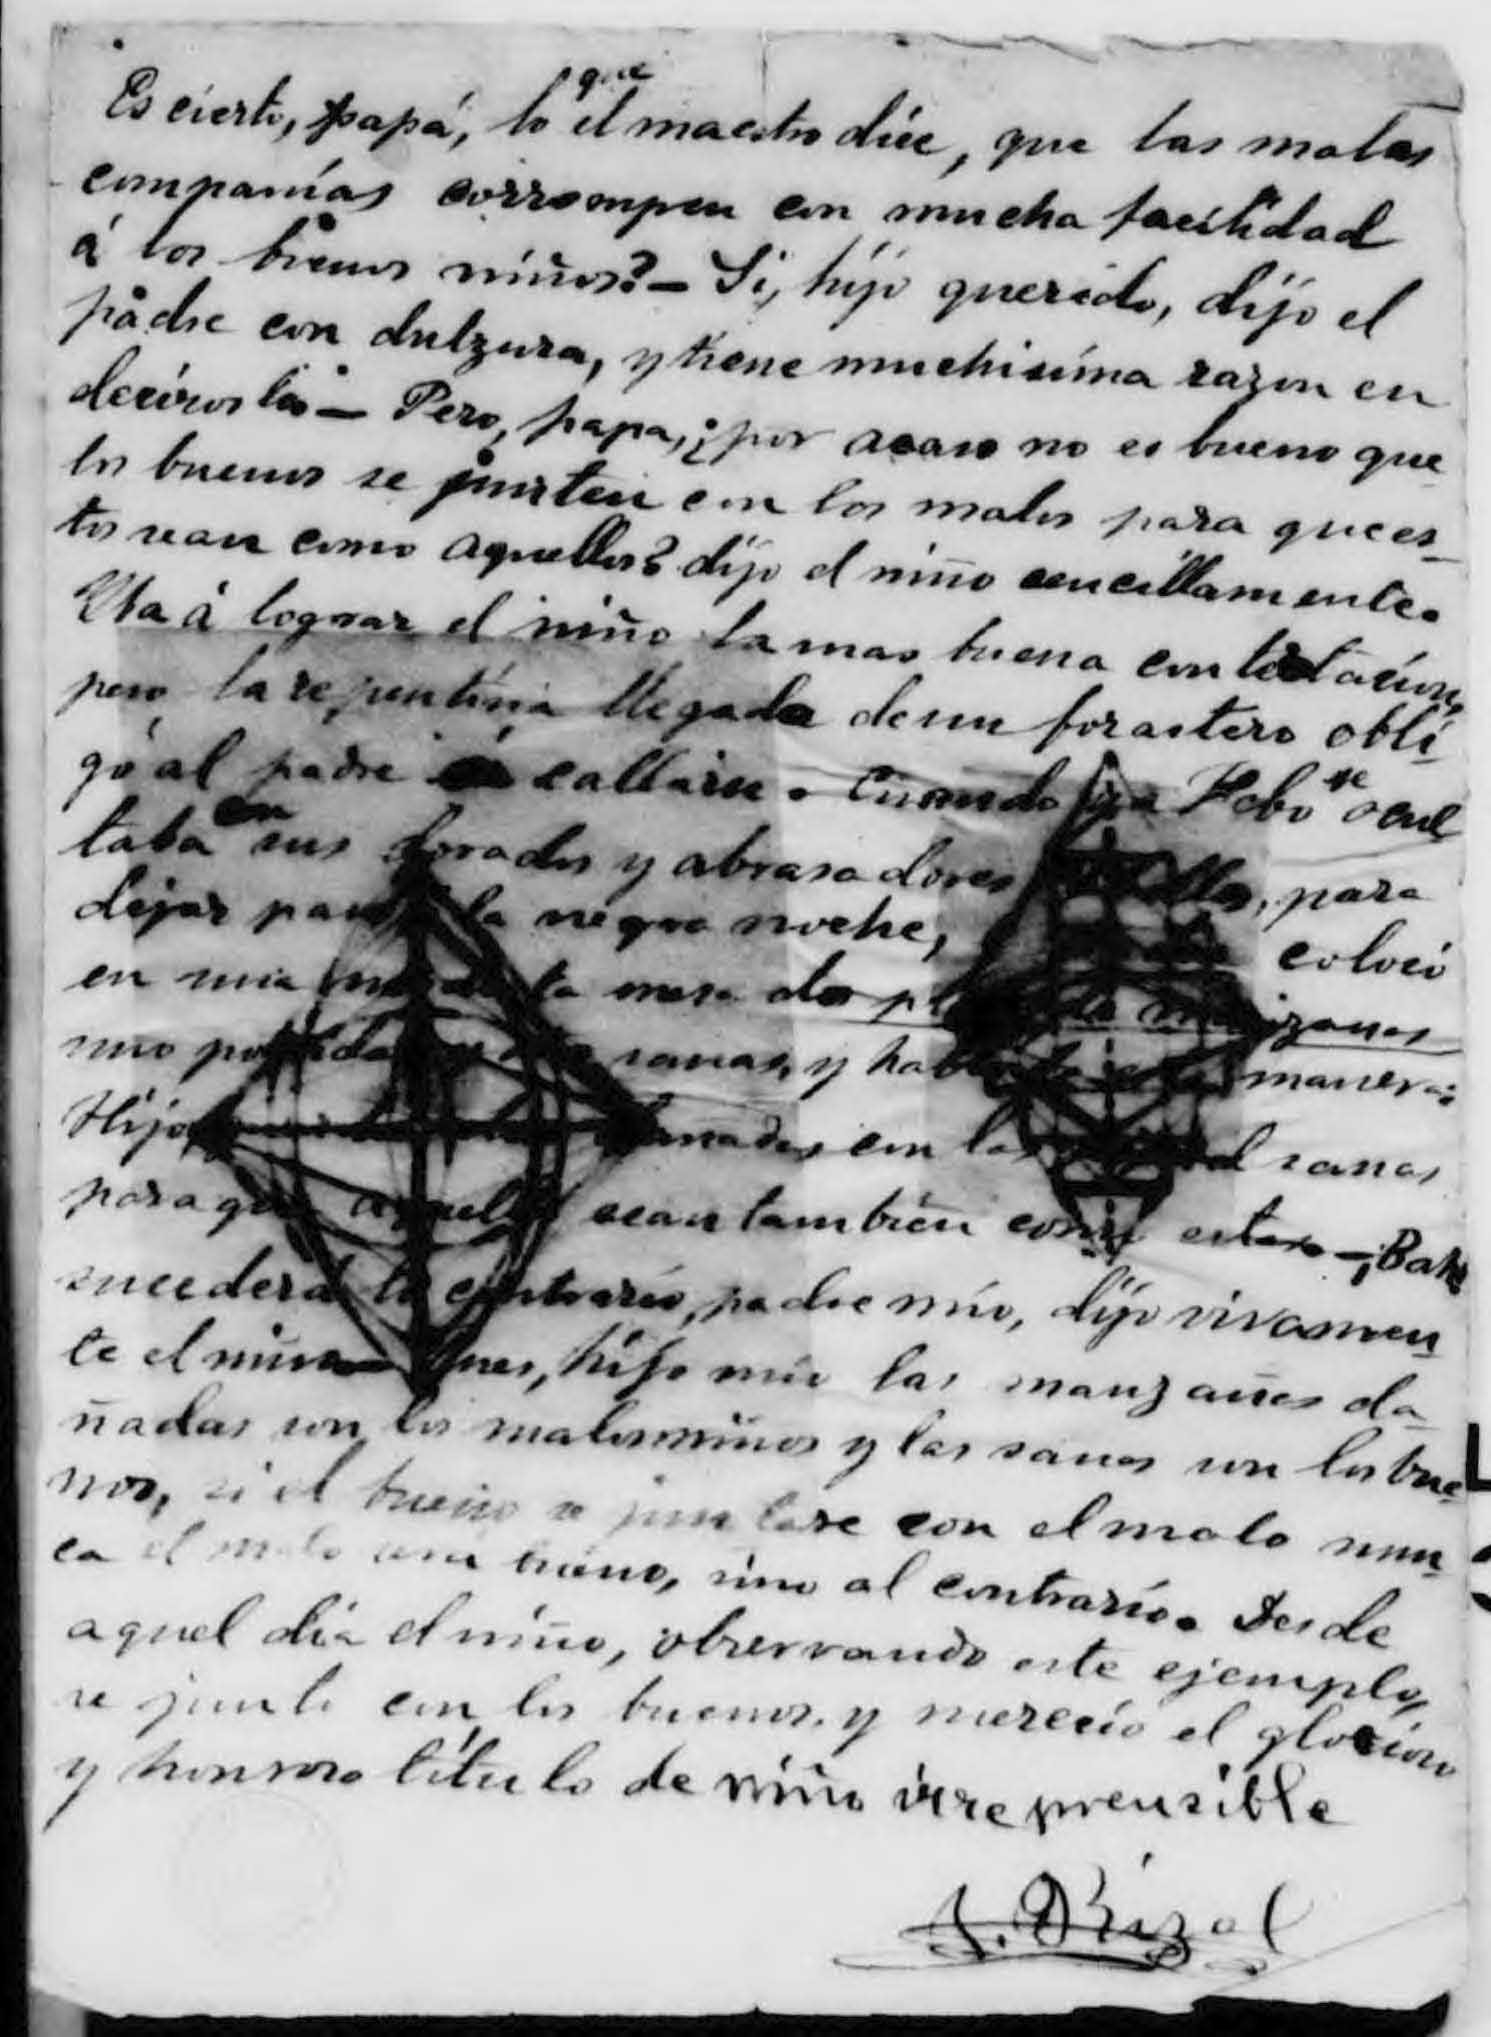 que
Es cierto, papá, lo el maestro dice, que las malas
companías corrompen con mucha facilidad
á los buenos niños?— Si, hijo querido, dijo el
padre con dulzura, y tiene muchisima razon en
deciros — Pero, papa, ¿por acaso no es bueno que
los buenos se junten con los malos para que es-
tos sean como aquellos? dijo el niño sencillamente.
Iba á lograr el niño la mas buena contestacion,
pero la repentina llegada de un forastero obli-
gó al padre á callarse. Cuando ya Febo se ocul
taba en sus dorados y abrasadores para
dejar paso la negra noche, colocó
en una mesa dos de manzanas
uno sanas, y habló de esta manera:
Hijo dañadas con las sanas
para que aquellas sean tambien como estas—¡Bah
sucederá lo contrario, padre mio, dijo vivamen-
te el niño— Pues, hijo mio las manzanas da-
ñadas son los malos niños y las sanas son los bue-
nos, si el bueno se juntase con el malo nun-
ca el malo será bueno, sino al contrario. Desde
aquel dia el niño, observando este ejemplo,
se juntó con los buenos, y mereció el glorioso
y honroso título de niño irreprensible
J. Rizal